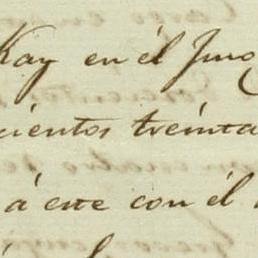 Kay en él Jmo
cientos treinta
á este con él